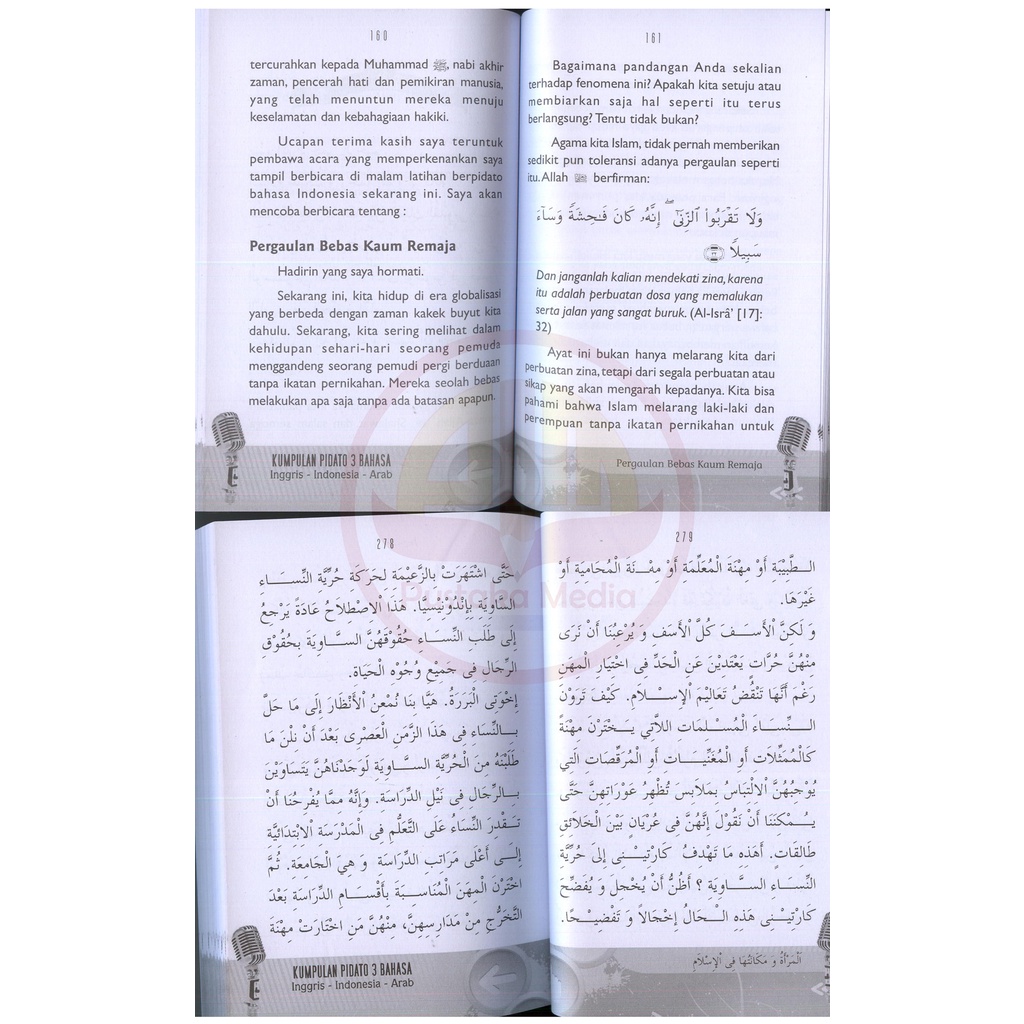 160
tercurahkan kepada Muhammad ﷺ, nabi akhir
zaman, pencerah hati dan pemikiran manusia,
yang telah menuntun mereka menuju
keselamatan dan kebahagiaan hakiki.
Ucapan terima kasih saya teruntuk
pembawa acara yang memperkenankan saya
tampil berbicara di malam latihan berpidato
bahasa Indonesia sekarang ini. Saya akan
mencoba berbicara tentang :
Pergaulan Bebas Kaum Remaja
Hadirin yang saya hormati.
Sekarang ini, kita hidup di era globalisasi
yang berbeda dengan zaman kakek buyut kita
dahulu. Sekarang, kita sering melihat dalam
kehidupan sehari-hari seorang pemuda
menggandeng seorang pemudi pergi berduaan
tanpa ikatan pernikahan. Mereka seolah bebas
melakukan apa saja tanpa ada batasan apapun.
KUMPULAN PIDATO 3 BAHASA
Inggris - Indonesia - Arab
161
Bagaimana pandangan Anda sekalian
terhadap fenomena ini? Apakah kita setuju atau
membiarkan saja hal seperti itu terus
berlangsung? Tentu tidak bukan?
Agama kita Islam, tidak pernah memberikan
sedikit pun toleransi adanya pergaulan seperti
itu. Allah berfirman:
وَلَا تَقْرَبُوا۟ ٱلزِّنَىٰٓ ۖ إِنَّهُۥ كَانَ فَـٰحِشَةً وَسَآءَ
سَبِيلًا ﴿٣٢﴾
Dan janganlah kalian mendekati zina, karena
itu adalah perbuatan dosa yang memalukan
serta jalan yang sangat buruk. (Al-Isrâ' [17]:
32)
Ayat ini bukan hanya melarang kita dari
perbuatan zina, tetapi dari segala perbuatan atau
sikap yang akan mengarah kepadanya. Kita bisa
pahami bahwa Islam melarang laki-laki dan
perempuan tanpa ikatan pernikahan untuk
Pergaulan Bebas Kaum Remaja
Pustaka Media
278
حَتَّى اشْتَهَرَتْ بِالزَّعِيْمَةِ لِحَرَكَةِ حُرِّيَّةِ النِّسَاءِ
السَّاوِيَةِ بِإِنْدُوْنِيْسِيَّا. هَذَا الْاِصْطِلَاحُ عَادَةً يَرْجِعُ
إِلَى طَلَبِ النِّسَاءِ حُقُوْقَهُنَّ السَّاوِيَةَ بِحُقُوْقِ
الرِّجَالِ فِى جَمِيْعِ وُجُوْهِ الْحَيَاةِ.
إِخْوَتِى الْبَرَرَةُ. هَيَّا بِنَا نُمْعِنُ الْأَنْظَارَ إِلَى مَا حَلَّ
بِالنِّسَاءِ فِى هَذَا الزَّمَنِ الْعَصْرِى بَعْدَ أَنْ نِلْنَ مَا
طَلَبْنَهُ مِنَ الْحُرِّيَّةِ السَّاوِيَةِ لَوَجَدْنَاهُنَّ يَتَسَاوَيْنَ
بِالرِّجَالِ فِى نَيْلِ الدِّرَاسَةِ. وَإِنَّهُ مِمَّا يُفْرِحُنَا أَنْ
تَقْدِرَ النِّسَاءُ عَلَى التَّعَلُّمِ فِى الْمَدْرَسَةِ الْاِبْتِدَائِيَّةِ
إِلَى أَعْلَى مَرَاتِبِ الدِّرَاسَةِ وَ هِيَ الْجَامِعَة. ثُمَّ
اخْتَرْنَ الْمِهَنَ الْمُنَاسِبَةَ بِأَقْسَامِ الدِّرَاسَةِ بَعْدَ
التَّخَرُّجِ مِنْ مَدَارِسِهِنَّ، مِنْهُنَّ مَنِ اخْتَارَتْ مِهْنَةَ
KUMPULAN PIDATO 3 BAHASA
Inggris - Indonesia - Arab
279
الطَّبِيْبَةِ أَوْ مِهْنَةَ الْمُعَلِّمَةِ أَوْ مِهْنَةَ الْمُحَامِيَةِ أَوْ
غَيْرَهَا.
وَ لَكِنَّ الْأَسَفَ كُلَّ الْأَسَفِ وَ يُرْعِبُنَا أَنْ نَرَى
مِنْهُنَّ حُرَّاتٍ يَعْتَدِيْنَ عَنِ الْحَدِّ فِى اخْتِيَارِ الْمِهَنِ
رَغْمَ أَنَّهَا تَنْقُضُ تَعَالِيْمَ الْإِسْلَامِ. كَيْفَ تَرَوْنَ
النِّسَاءَ الْمُسْلِمَاتِ اللَّاتِي يَخْتَرْنَ مِهْنَةً
كَالْمُمَثِّلَاتِ أَوِ الْمُغَنِّيَاتِ أَوِ الْمُرَقِّصَاتِ الَّتِي
يُوْجِبُهُنَّ الْاِلْتِبَاسُ بِمَلَابِسَ تُظْهِرُ عَوْرَاتِهِنَّ حَتَّى
يُمْكِنَنَا أَنْ نَقُوْلَ إِنَّهُنَّ فِى عُرْيَانٍ بَيْنَ الْخَلَائِقِ
طَالِقَاتٍ. أَهَذِهِ مَا تَهْدِفُ كَارْتِيْنِى إِلَى حُرِّيَّةِ
النِّسَاءِ السَّاوِيَةِ ؟ أَظُنُّ أَنْ يُخْجِلَ وَ يُفَضِّحَ
كَارْتِيْنِى هَذِهِ الْحَالُ إِخْجَالًا وَ تَفْضِيْحًا.
اَلْمَرْأَةُ وَ مَكَانَتُهَا فِى الْإِسْلَامِ